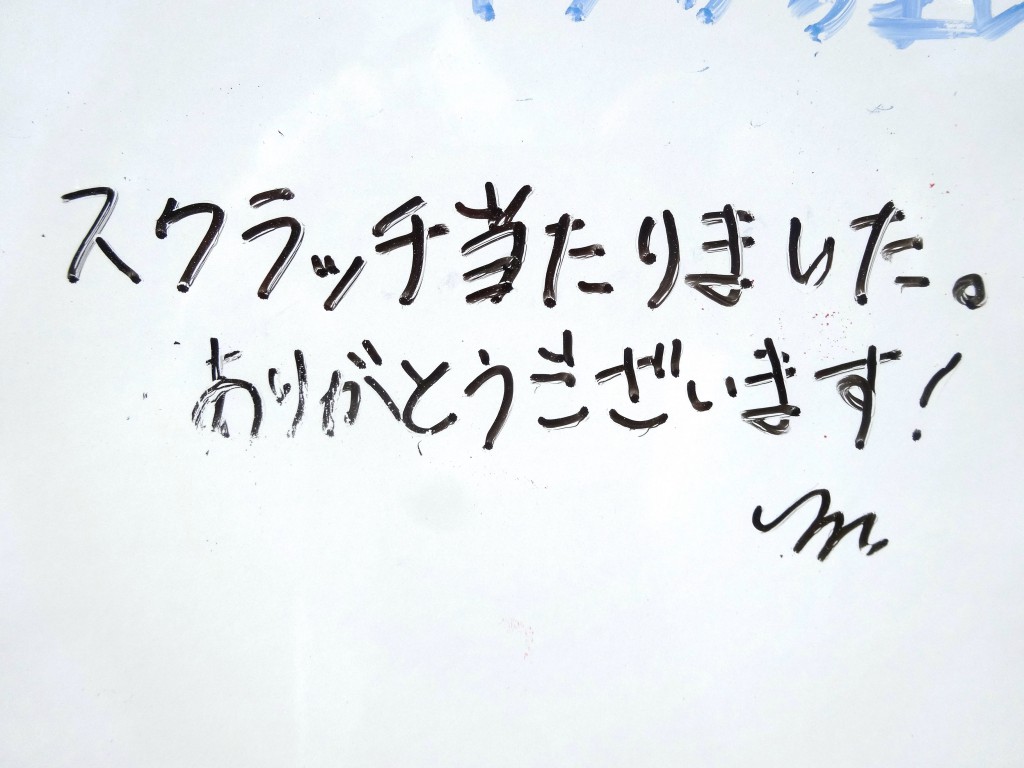 スクラッチ当たりました。
ありがとうございます!
m